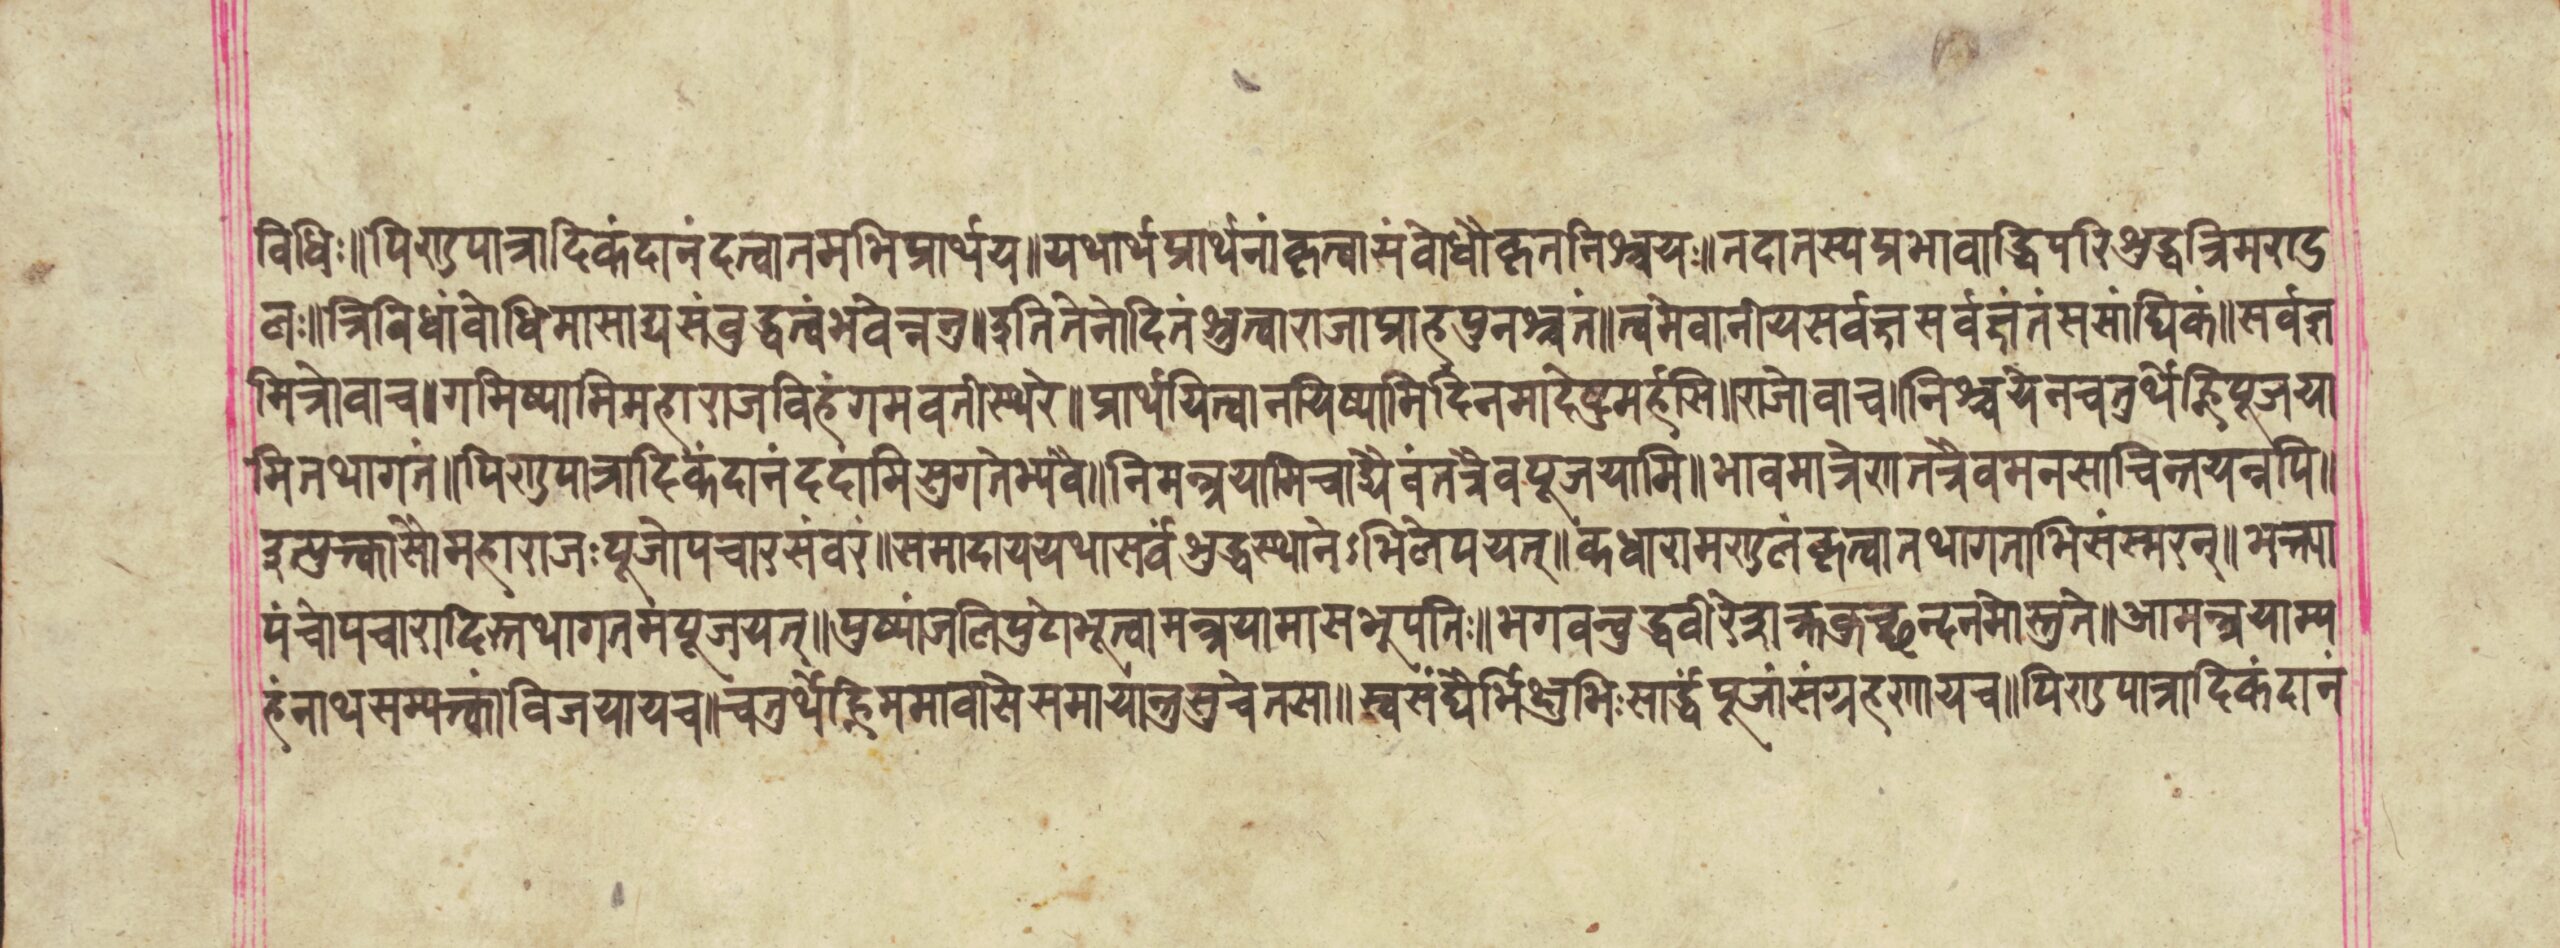 विधिः॥पिण्डपात्रादिकंदानंदत्वातमभिप्रार्थय॥यथार्थप्रार्थनांकृत्वासंवोधौकृतनिश्चयः॥तदातस्यप्रभावाद्धिपरिशुद्धत्रिमण्ड
लः॥त्रिविधांवोधिमासाद्यसंवुद्धत्वंभवेन्नतु॥इतितेनोदितंश्रुत्वाराजाप्राहपुनश्चतं॥त्वमेवानीयसर्वज्ञसर्वज्ञंतंससांघिकं॥सर्वज्ञ
मित्रोवाच॥गमिष्यामिमहाराजविहंगमवतीस्थरे॥प्रार्थयित्वानयिष्यामिर्दिनमादेष्टुमर्हसि॥राजोवाच॥निश्चयेनचतुर्थेह्निपूजया
मितथागतं॥पिण्डपात्रादिकंदानंददामिसुगतेभ्यवै॥निमन्त्रयामिचाद्यैवंतत्रैवपूजयामि॥भावमात्रेणतत्रैवमनसाचिन्तयन्नपि॥
इत्युक्त्वासौमहाराजःपूजोपचारसंवरं॥समादाययथासर्वंशुद्धस्थानेऽभिलेपयत्॥कंधारामण्डलंकृत्वातथागताभिसंस्मरन्॥भक्त्या
पंचोपचारादिस्तथागतमंपूजयत्॥पुष्पांजलिपुटोभूत्वामन्त्रयामासभूपतिः॥भगवन्वुद्धवीरेन्द्राक्तक्रच्छन्दनमोस्तुते॥आमन्त्रयाम्य
हंनाथसम्यक्त्कांविजयायच॥चतुर्थेह्निममावासेसमायान्तुसुचेतसा॥स्वसंघैर्भिक्षुभिःसार्द्धंपूजांसंग्रहणायच॥पिण्डपात्रादिकंदानं